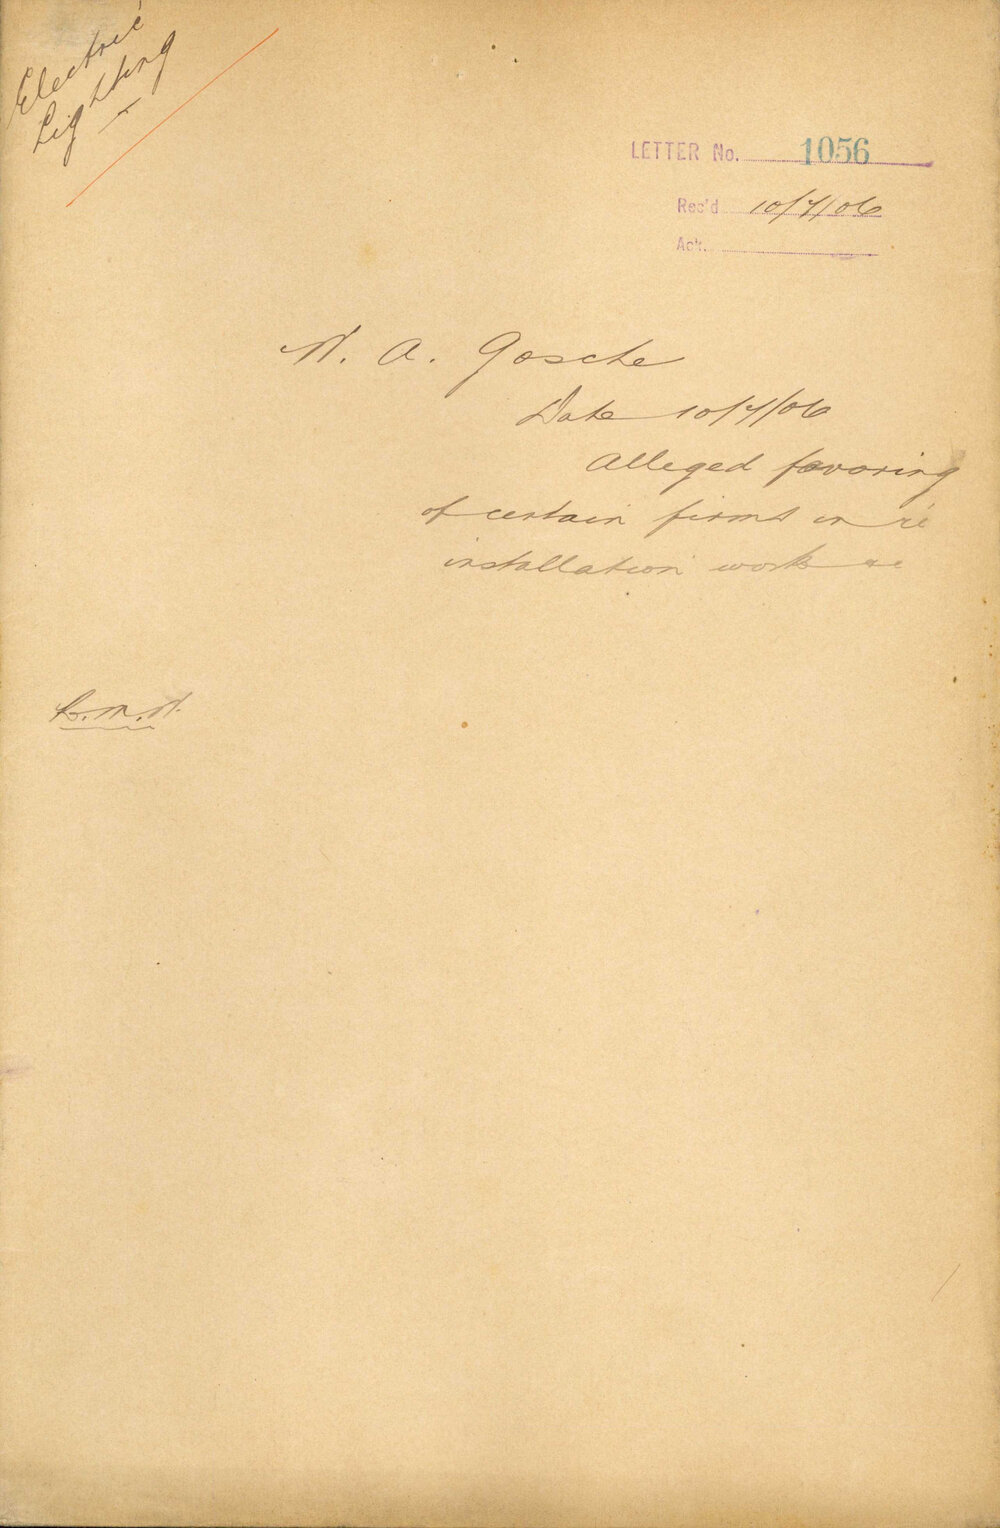 Electric
Lighting
LETTER No. 1056
Rec'd 10/7/06
Ack.
A. Gosche
Date 10/7/06
Alleged favoring
of certain firms in re
installation work